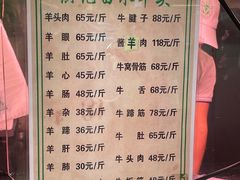 羊头肉 65元/斤 牛腱子 88元/斤
羊眼 65元/斤 酱羊肉 118元/斤
羊肚 65元/斤 牛窝骨筋 68元/斤
羊心 45元/斤 牛舌 68元/斤
羊肠 48元/斤 牛杂 48元/斤
羊杂 38元/斤 牛蹄筋 48元/斤
羊蹄 36元/斤 牛肚 65元/斤
羊肝 36元/斤 牛头肉 48元/斤
羊肺 30元/斤